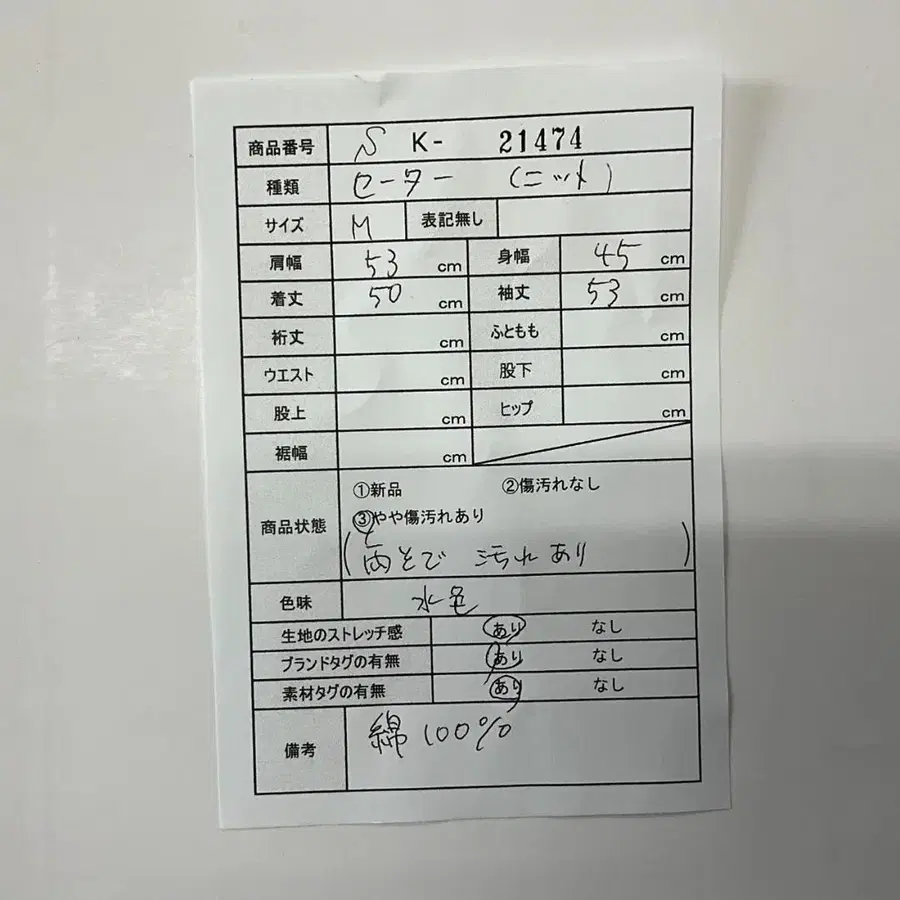 商品番号 S K- 21474
種類 セーター (ニット)
サイズ M 表記無し
肩幅 53 cm 身幅 45 cm
着丈 50 cm 袖丈 53 cm
裄丈 cm ふともも cm
ウエスト cm 股下 cm
股上 cm ヒップ cm
裾幅 cm
商品状態 ①新品 ②傷汚れなし
③やや傷汚れあり
(両そで 汚れあり)
色味 水色
生地のストレッチ感 あり なし
ブランドタグの有無 あり なし
素材タグの有無 あり なし
備考 綿100%